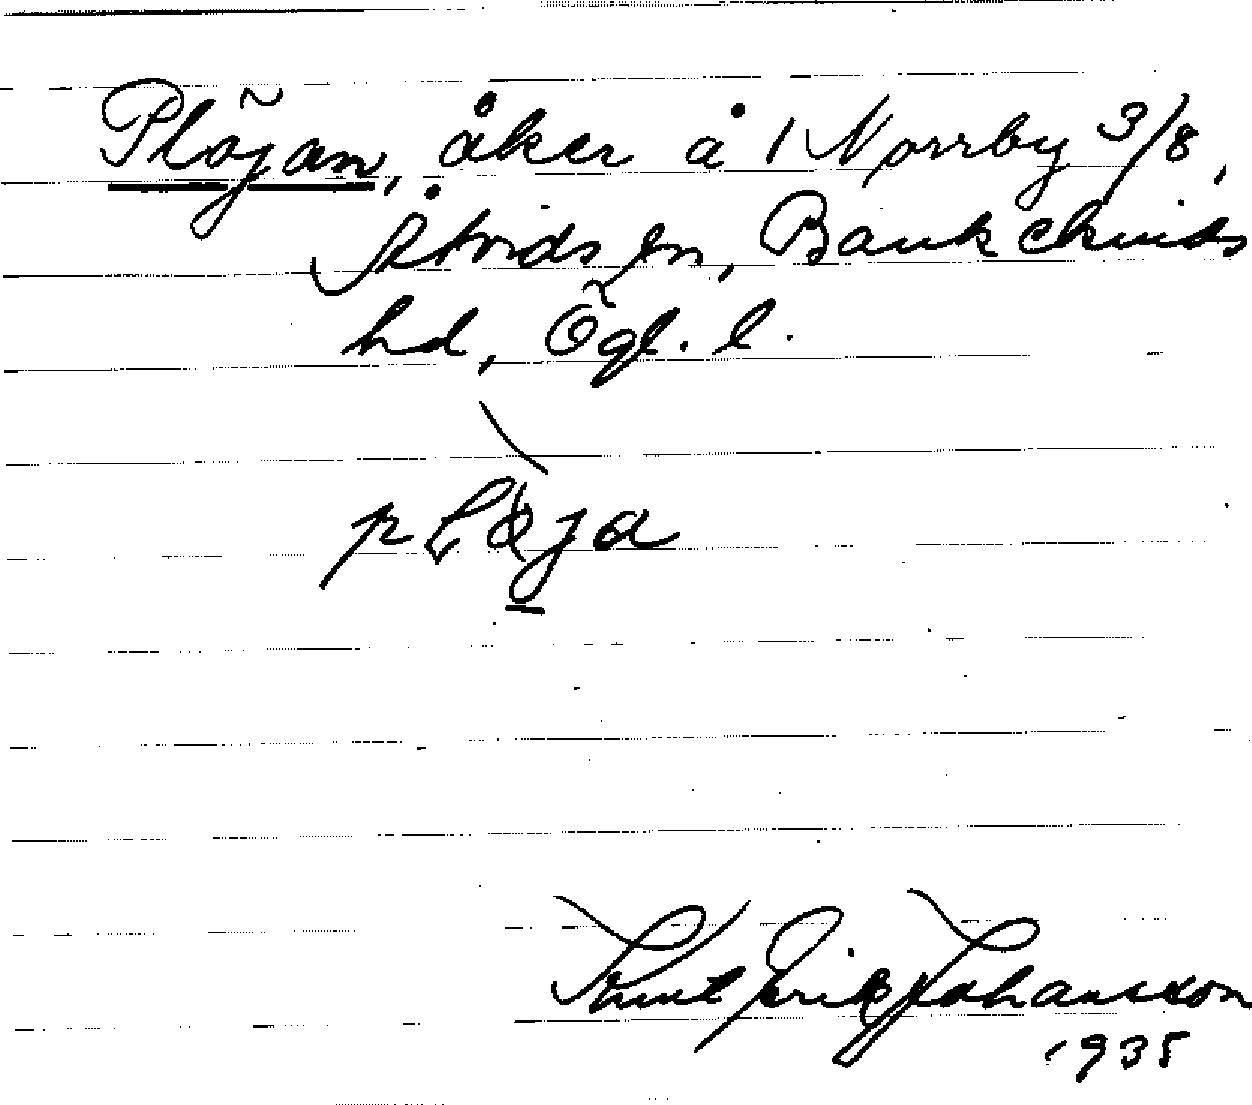 Plöjan, åker å 1 Norrby 3/8,
Åtvids sn, Bankekinds
hd, Ögl. l.
Knut Erik Johansson
1935